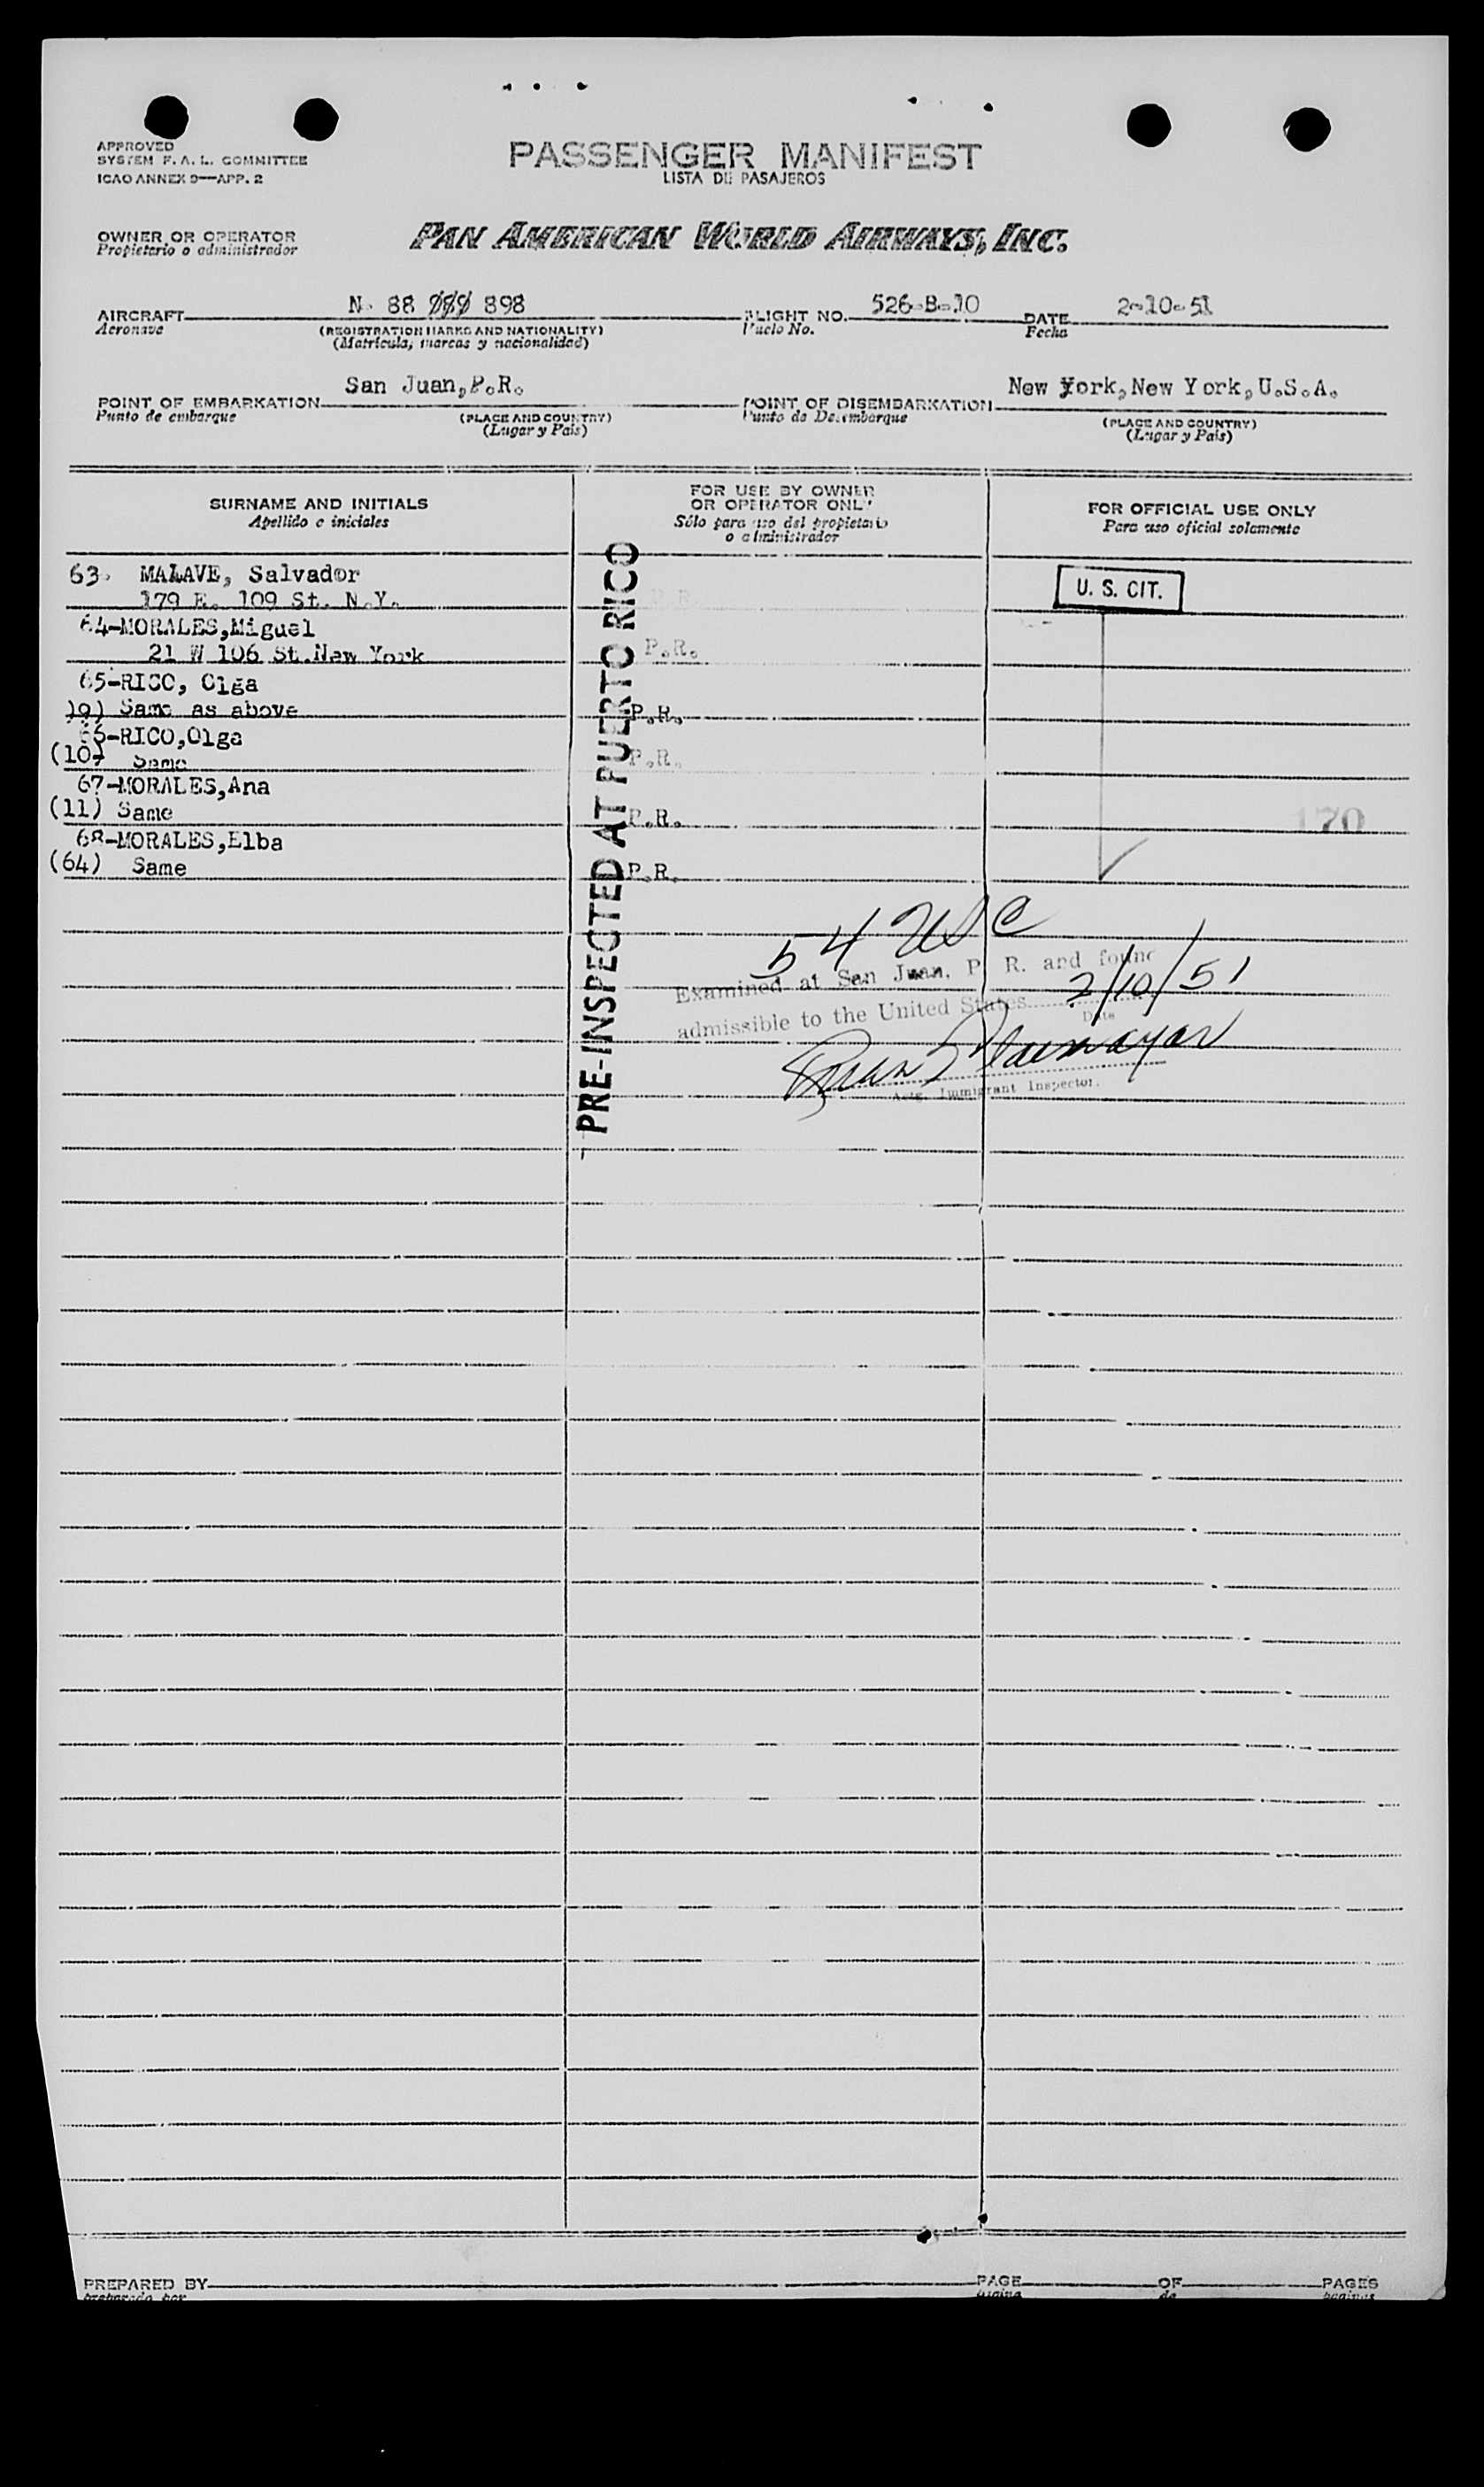 APPROVED
SYSTEM F. A. L. COMMITTEE
ICAO ANNEX 9—APP. 2
PASSENGER MANIFEST
LISTA DE PASAJEROS
OWNER OR OPERATOR
Propietario o administrador
PAN AMERICAN WORLD AIRWAYS, INC.
AIRCRAFT N- 88 898
Aeronave
(REGISTRATION MARKS AND NATIONALITY)
(Matrícula, marcas y nacionalidad)
FLIGHT NO. 526-B-10
Vuelo No.
DATE 2-10-51
Fecha
POINT OF EMBARKATION San Juan,P.R.
Punto de embarque
(PLACE AND COUNTRY)
(Lugar y País)
POINT OF DISEMBARKATION New York,New York,U.S.A.
Punto de Desembarque
(PLACE AND COUNTRY)
(Lugar y País)
SURNAME AND INITIALS
Apellido e iniciales
FOR USE BY OWNER
OR OPERATOR ONLY
Sólo para uso del propietario
o administrador
FOR OFFICIAL USE ONLY
Para uso oficial solamente
63. MALAVE, Salvador
179 E. 109 St. N.Y. P.R.
U. S. CIT.
64-MORALES,Miguel
21 W 106 St.New York P.R.
65-RICO, Olga
)9) Same as above P.R.
66-RICO,Olga
(10) Same P.R.
67-MORALES,Ana
(11) Same P.R.
170
68-MORALES,Elba
(64) Same P.R.
PRE-INSPECTED AT PUERTO RICO
54 USC
Examined at San Juan, P. R. and found
admissible to the United States 2/10/51
Date
Actg. Immigrant Inspector.
PREPARED BY
preparado por
PAGE OF PAGES
página de páginas